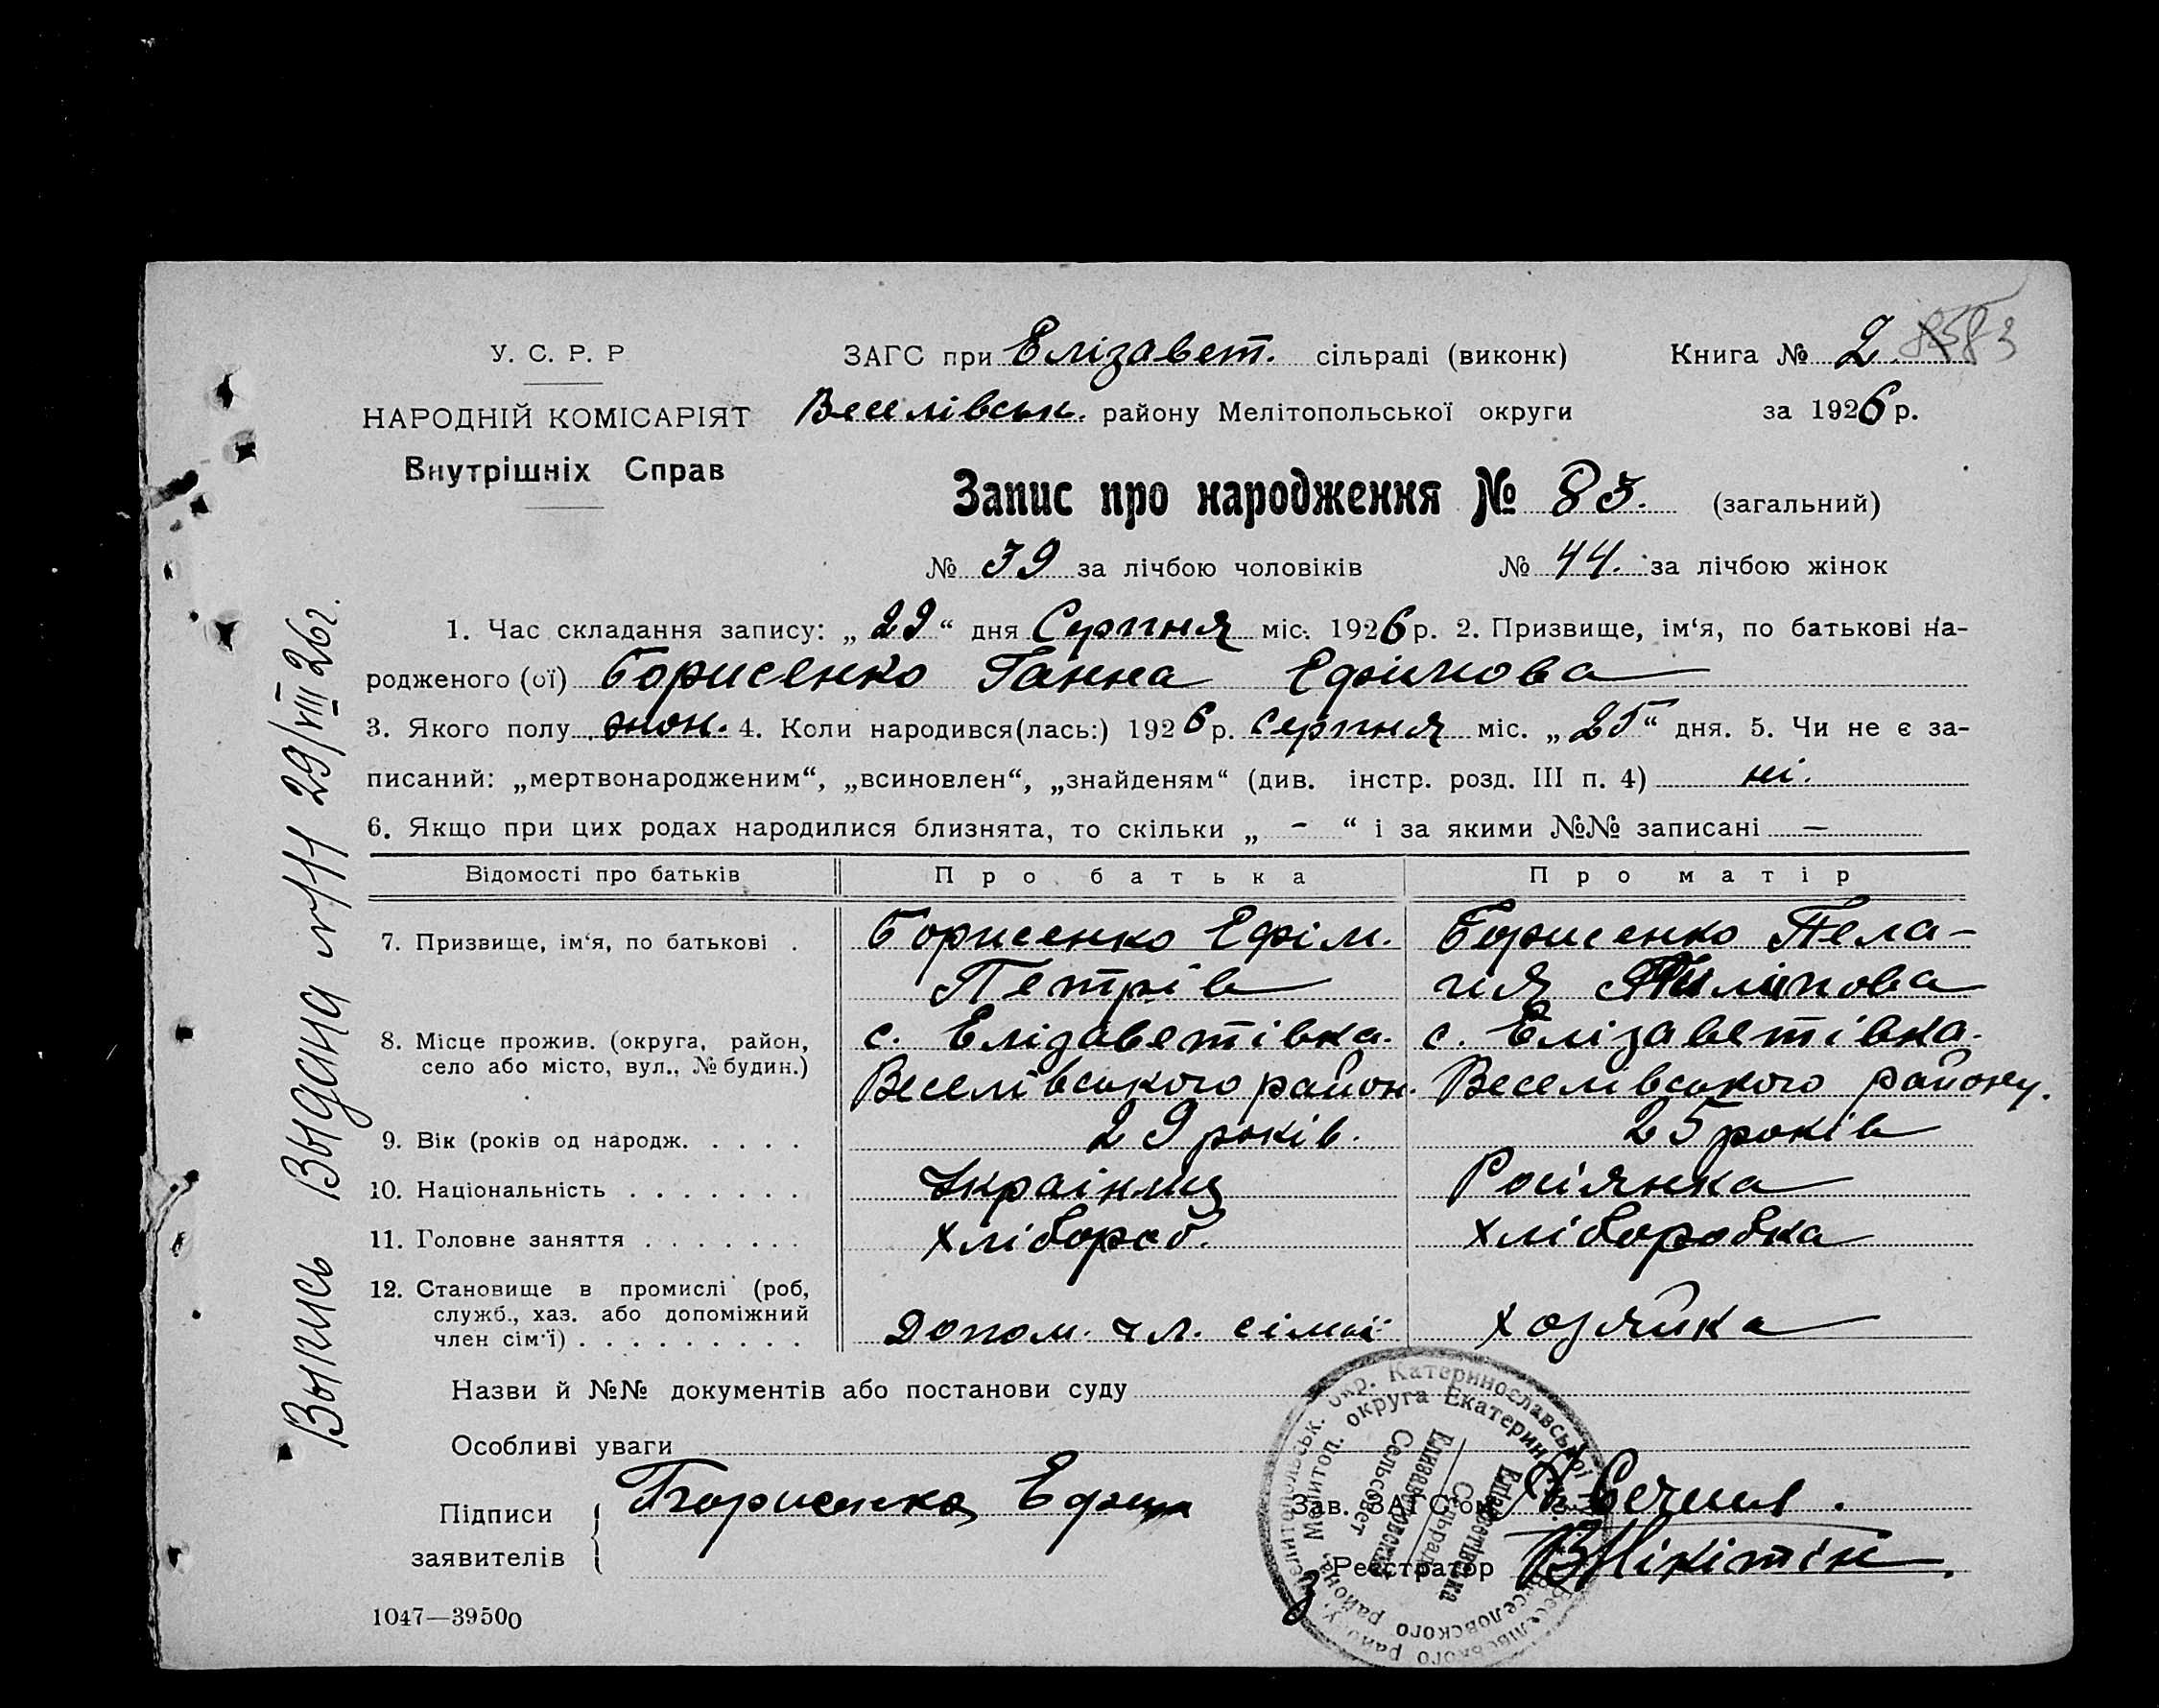 У. С. Р. Р
НАРОДНІЙ КОМІСАРІЯТ
Внутрішніх Справ
ЗАГС при Елізавет. сільраді (виконк)
Веселівськ. району Мелітопольської округи
Книга № 2
за 1926 р.
Запис про народження № 83. (загальний)
№ 39 за лічбою чоловіків № 44. за лічбою жінок
1. Час складання запису: „29“ дня Серпня міс. 1926 р. 2. Призвище, ім‘я, по батькові на-
родженого (ої) Борисенко Ганна Ефімова
3. Якого полу жон. 4. Коли народився(лась:) 1926 р. Серпня міс. „25“ дня. 5. Чи не є за-
писаний: „мертвонародженим“, „всиновлен“, „знайденям“ (див. інстр. розд. III п. 4) ні.
6. Якщо при цих родах народилися близнята, то скільки „ - “ і за якими №№ записані —
Відомості про батьків Про батька Про матір
7. Призвище, ім‘я, по батькові . Борисенко Ефім. Борисенко Пела-
Петрів гия
8. Місце прожив. (округа, район, с. Елізаветівка. с. Елізаветівка.
село або місто, вул., № будин.) Веселівського район. Веселівського району.
9. Вік (років од народж. . . . . 29 років. 25 років
10. Національність . . . . . . . Українец Росіянка
11. Головне заняття . . . . . . . Хлібороб. Хліборобка
12. Становище в промислі (роб,
служб., хаз. або допоміжний
член сім‘ї) . . . . . . . . . Допом. чл. сімьї Хозяйка
Назви й №№ документів або постанови суду
Особливі уваги
Підписи
заявителів
Борисенко Ефим
Зав. ЗАГС‘ом
Реєстратор ВНікітін.
1047—39500
Выпись Выдана № 111 29/VIII 26г.
Мелітопольськ. окр. Катеринославської
Мелитоп. округа Екатерин
Елизаветовский
Сельсовет
Елізаветівська
Сільрада
Веселовского района
Веселівського району